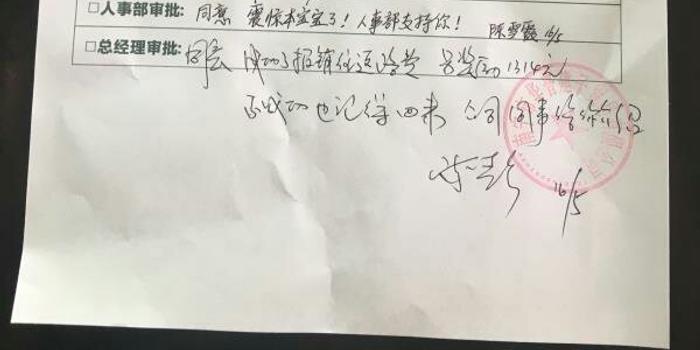 □人事部审批: 同意 震惊本宝宝了！人事部支持你！ 陈雪霞 16/5
□总经理审批: 同意 成功了报销往返路费 另奖励1314元
不成功也记得回来 公司同事给你介绍
16/5